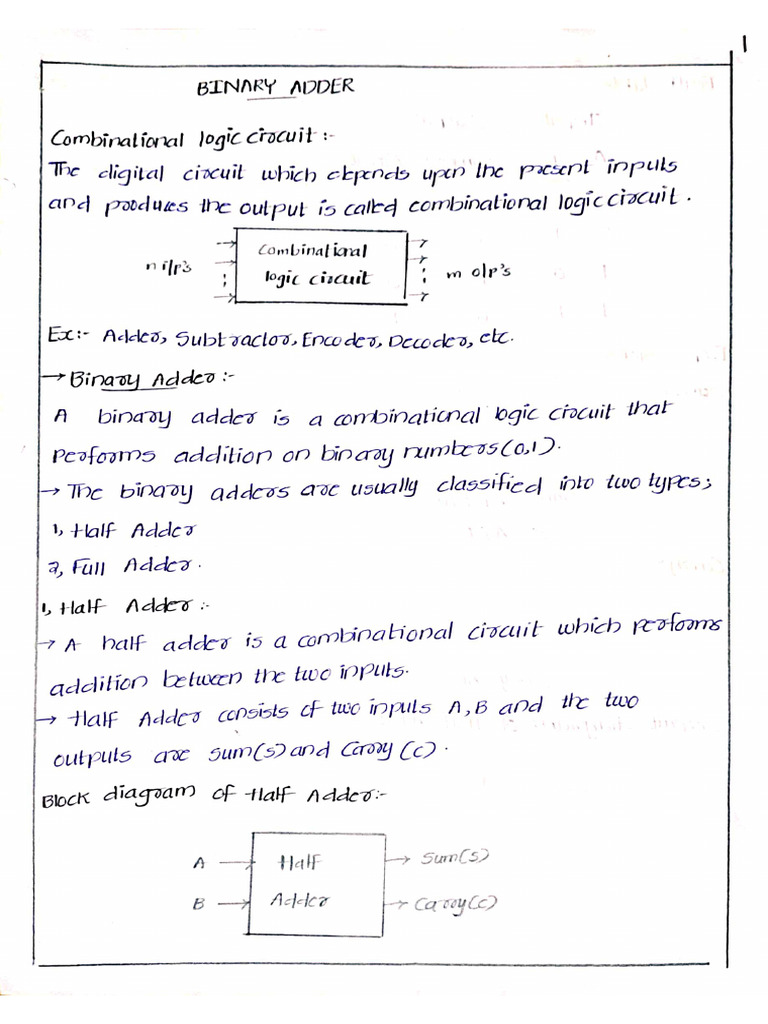 1
BINARY ADDER
Combinational logic circuit :-
The digital circuit which depends upon the present inputs
and produces the output is called combinational logic circuit.
n i/p's
Combinational
logic circuit
m o/p's
Ex:- Adder, Subtractor, Encoder, Decoder, etc.
→ Binary Adder :-
A binary adder is a combinational logic circuit that
performs addition on binary numbers (0,1).
→ The binary adders are usually classified into two types;
1, Half Adder
2, Full Adder.
1, Half Adder :-
→ A half adder is a combinational circuit which performs
addition between the two inputs.
→ Half Adder consists of two inputs A, B and the two
outputs are sum(s) and carry (c).
Block diagram of Half Adder:-
A → Half → Sum(s)
B → Adder → Carry(c)